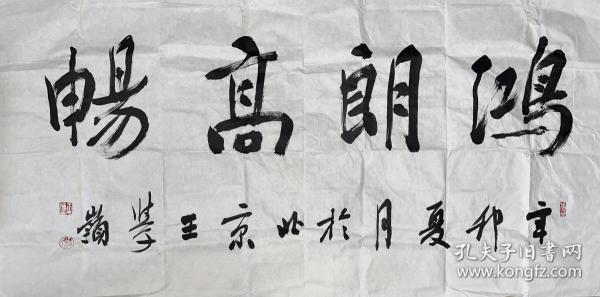 鴻朗高暢
辛卯夏月於北京王學嶺
孔夫子旧書网
www.kongfz.com